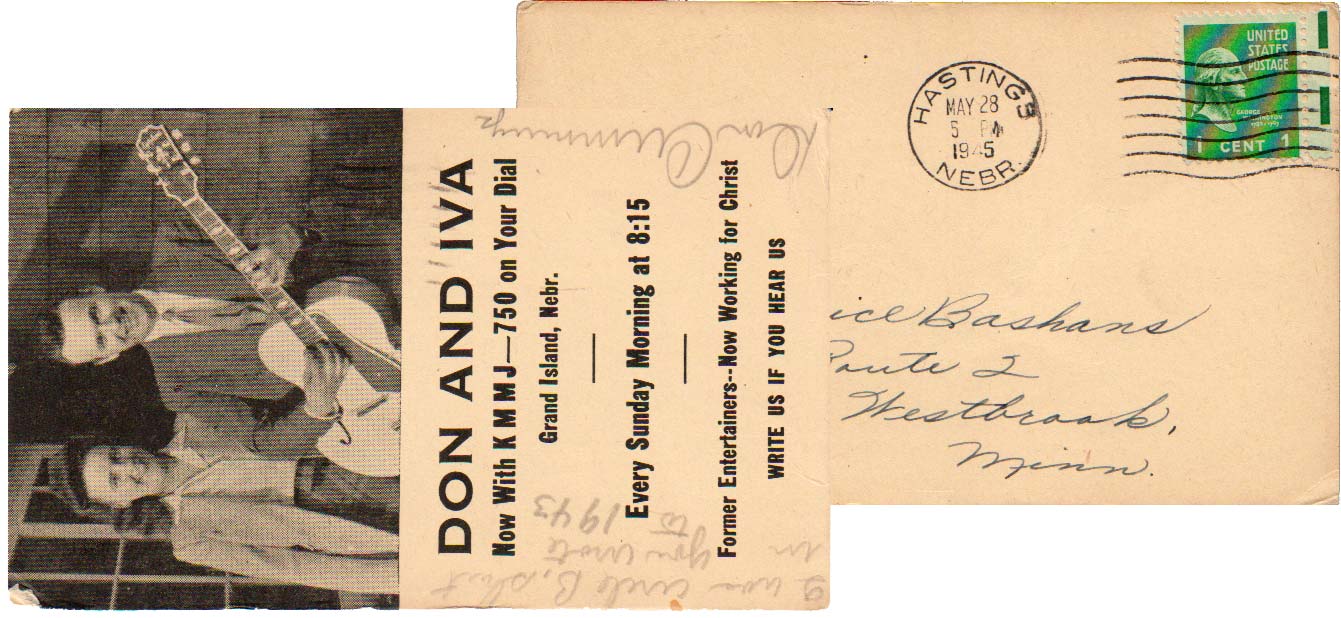 DON AND IVA
Now With K M M J—750 on Your Dial
Grand Island, Nebr.
Every Sunday Morning at 8:15
Former Entertainers--Now Working for Christ
WRITE US IF YOU HEAR US
Don Cummings
I was Circle B,
you wrote
to
in
1943
HASTINGS
MAY 28
5 PM
1945
NEBR.
UNITED
STATES
POSTAGE
GEORGE
1 CENT 1
Bashans
Route 2
Westbrook,
Minn.